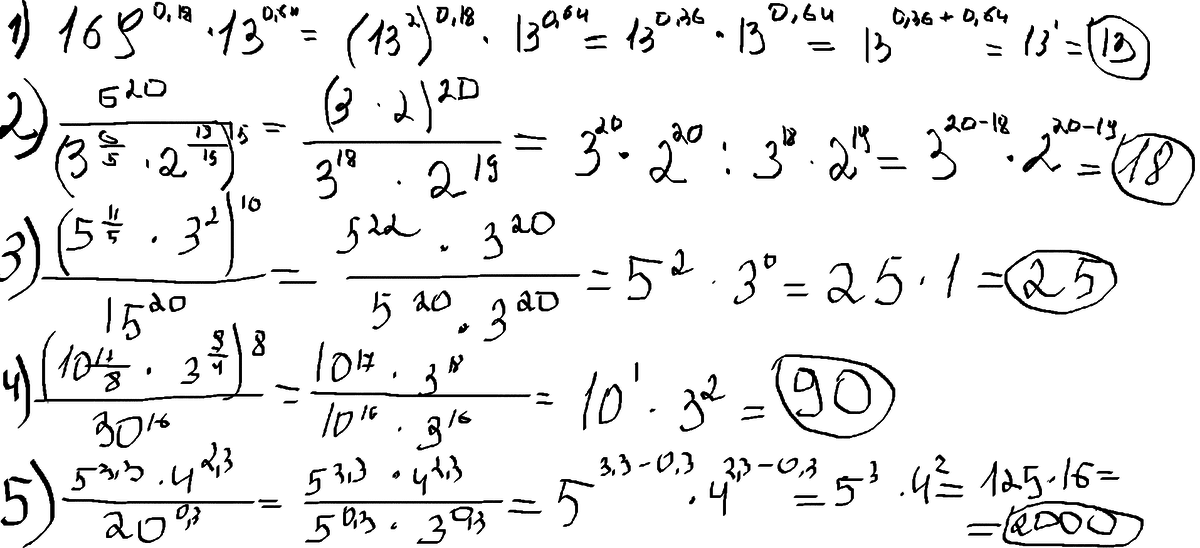 1) 169^0,18 · 13^0,64 = (13^2)^0,18 · 13^0,64 = 13^0,36 · 13^0,64 = 13^0,36+0,64 = 13^1 = 13
2) 6^20 / (3^(6/5) · 2^(19/15))^15 = (3 · 2)^20 / 3^18 · 2^19 = 3^20 · 2^20 : 3^18 · 2^19 = 3^20-18 · 2^20-19 = 18
3) (5^(11/5) · 3^2)^10 / 15^20 = 5^22 · 3^20 / 5^20 · 3^20 = 5^2 · 3^0 = 25 · 1 = 25
4) (10^(17/8) · 3^(9/4))^8 / 30^16 = 10^17 · 3^18 / 10^16 · 3^16 = 10^1 · 3^2 = 90
5) 5^3,3 · 4^2,3 / 20^0,3 = 5^3,3 · 4^2,3 / 5^0,3 · 3^0,3 = 5^3,3-0,3 · 4^2,3-0,3 = 5^3 · 4^2 = 125 · 16 =
= 2000